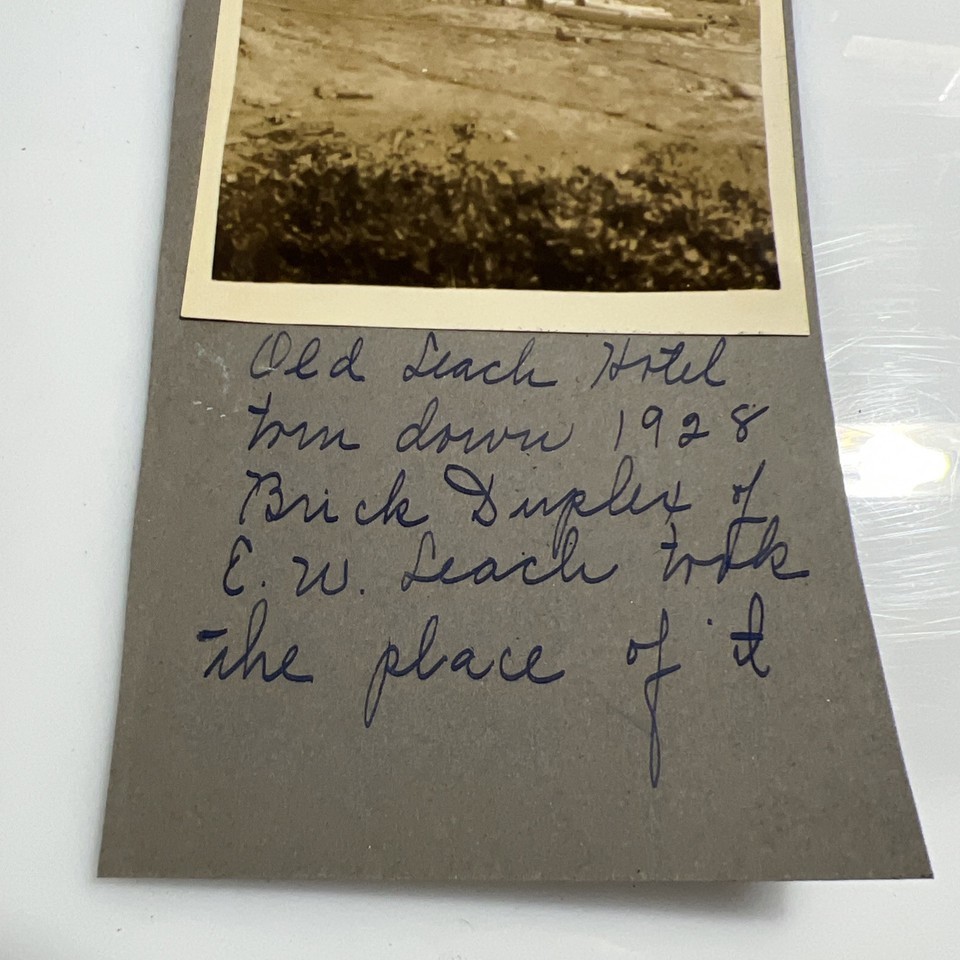 Old Leach Hotel
torn down 1928
Brick Duplex of
E. W. Leach took
the place of it